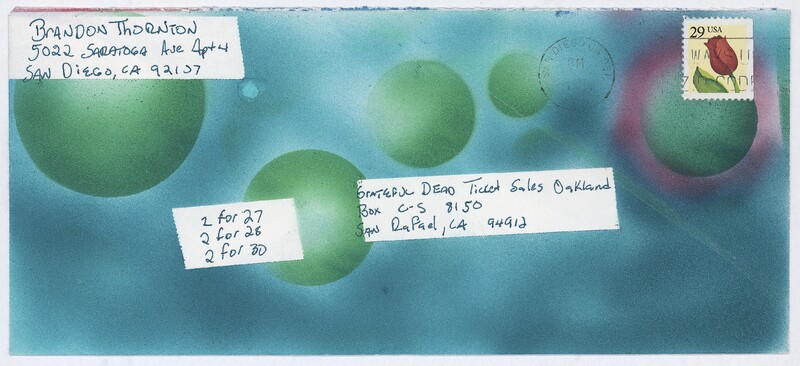 BRANDON THORNTON
5022 SARATOGA AVE APT 4
SAN DIEGO, CA 92107
29 USA
SAN DIEGO CA
ZIP CODE
GRATEFUL DEAD TICKET SALES OAKLAND
BOX C-S 8150
SAN RAFAEL, CA 94912
2 for 27
2 for 28
2 for 30